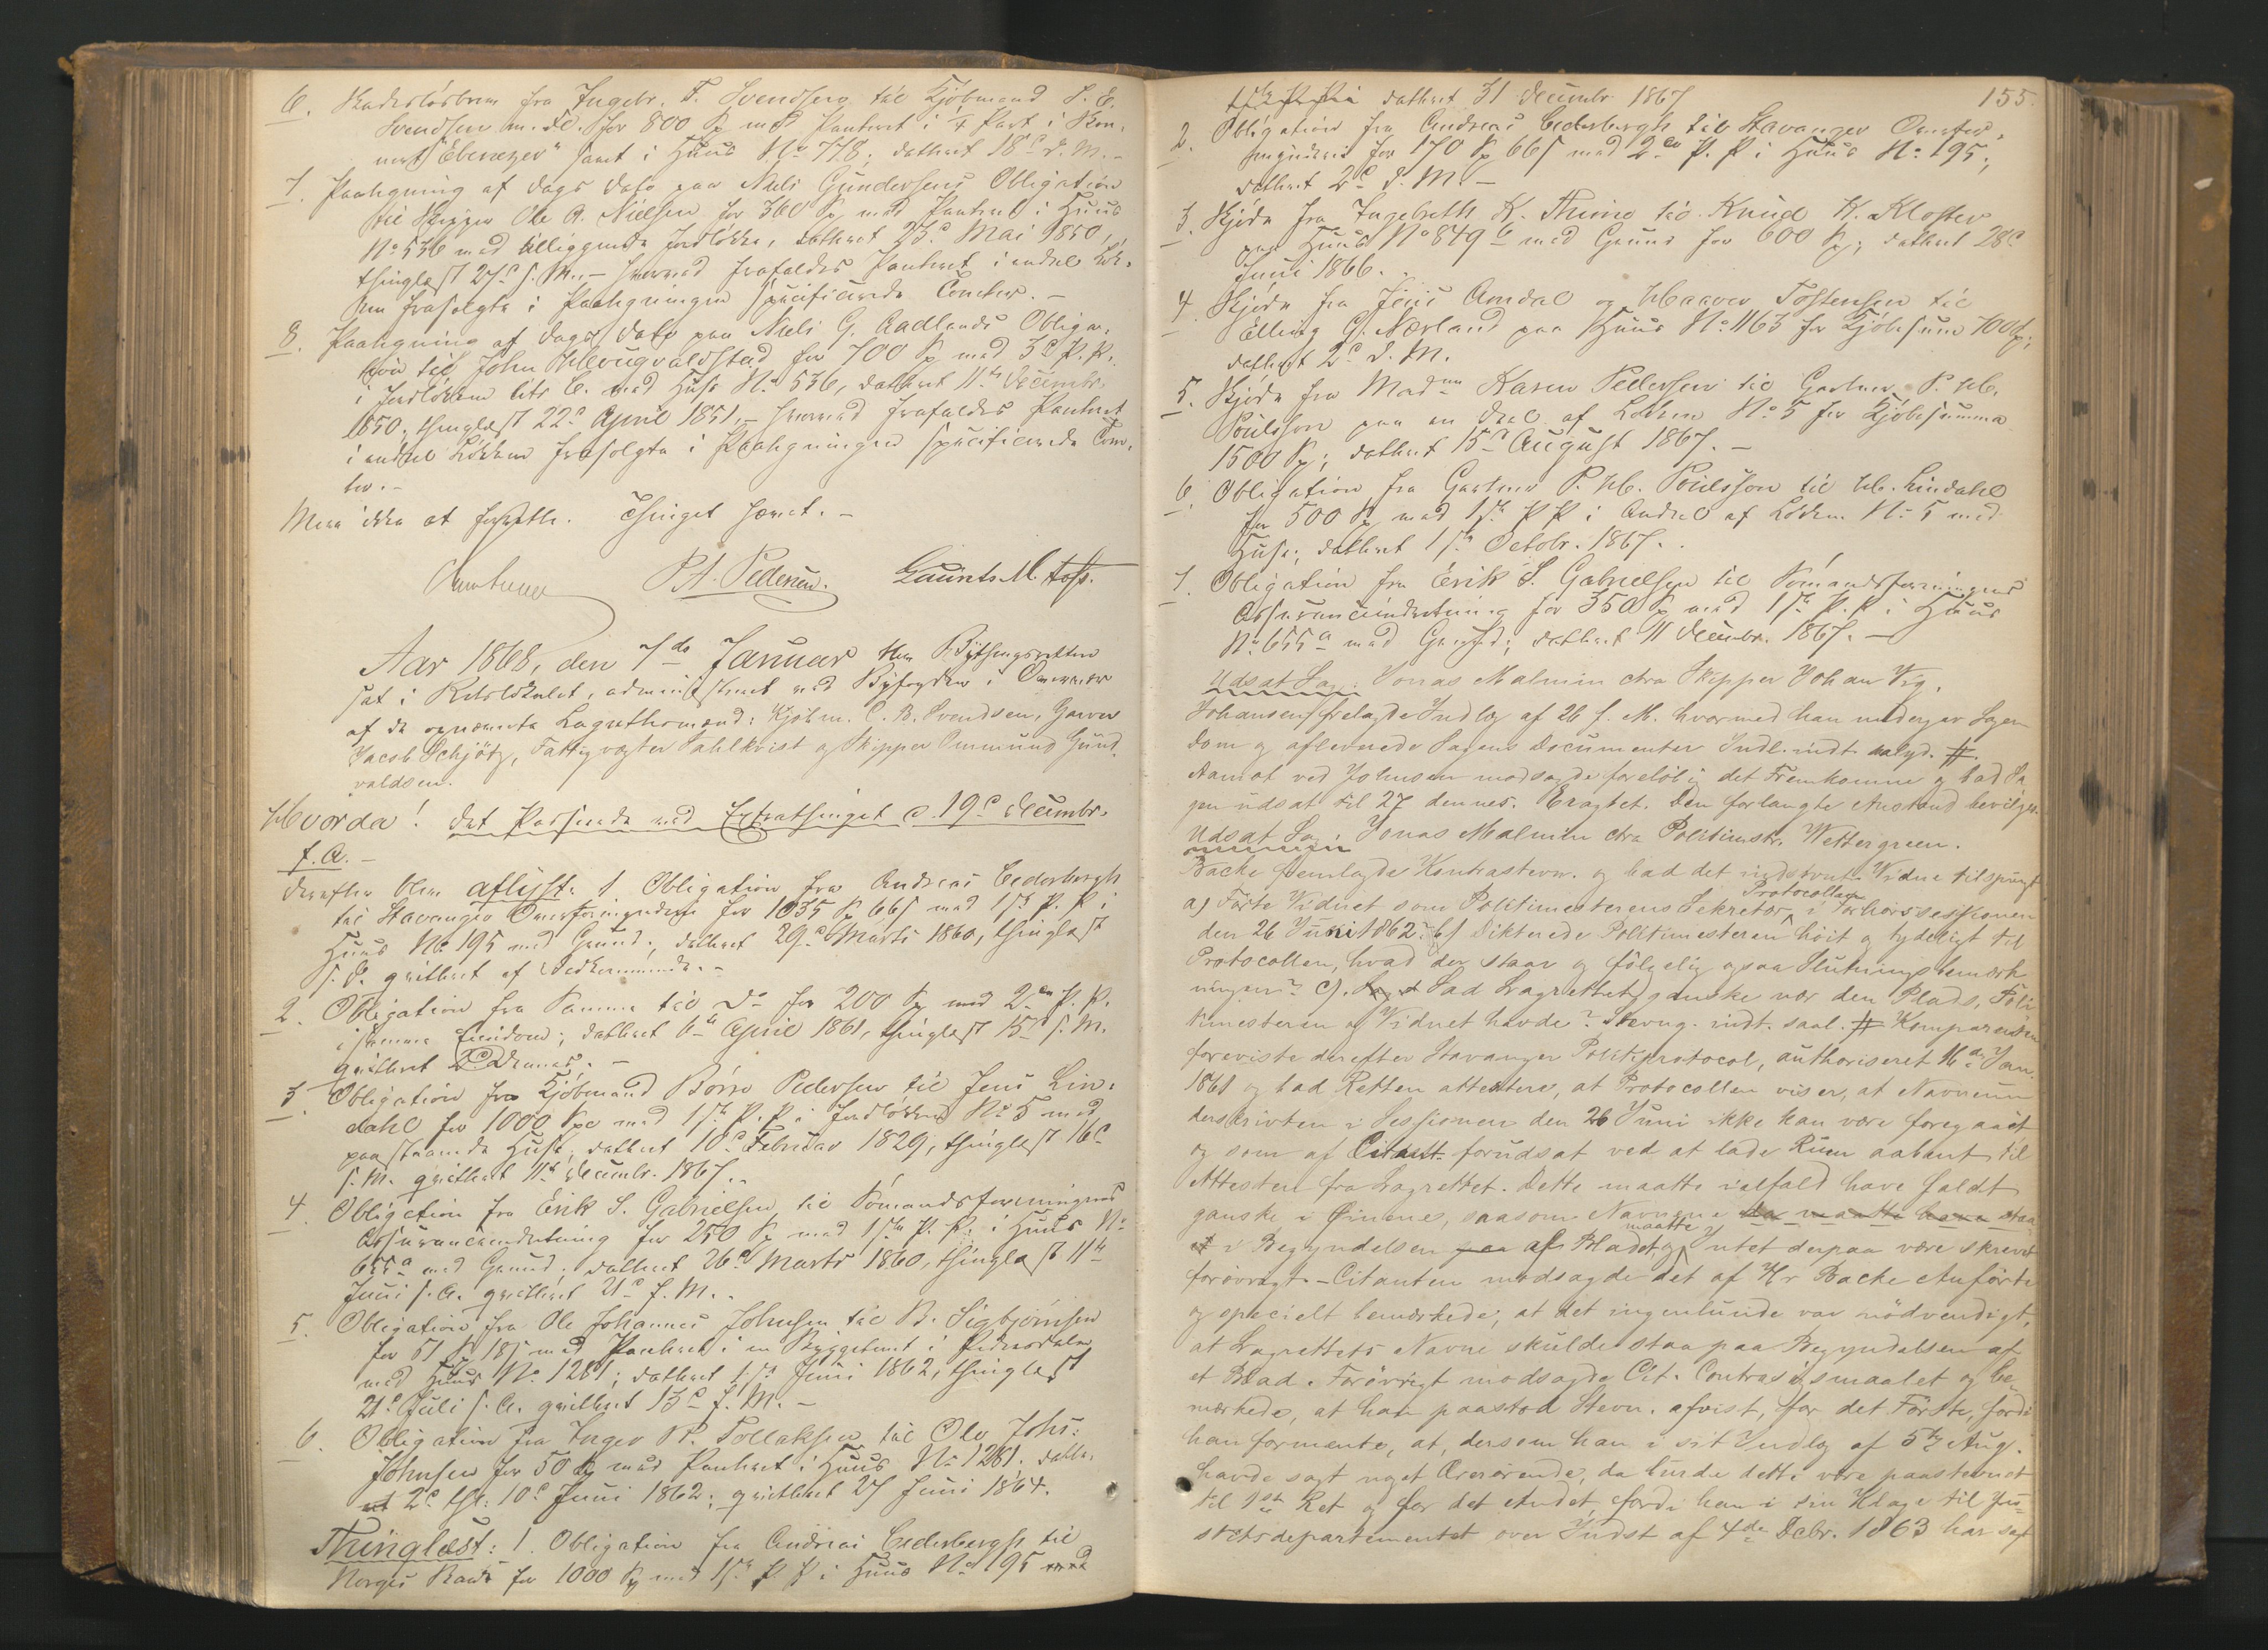 6. Skadesløsbrev fra Ingebr. T. Svendsen til Kjøbmand S. E.
Svendsen m. Fl. for 800 Sp med Panteret i 1/4 Part i
"Ebenezer" samt i Huus No 778; dateret 18de d. M. -
7. Paategning af Dags Dato paa Niels Gundersens Obligation
til Skipper Ole A. Nielsen for 360 Sp med Panteret i Huus
No 536 med tilliggende Jordløkke, dateret 23de Mai 1850,
thinglæst 27de s. M., - hvorved frafaldes Panteret i endel
frasolgte i Paategningen specificerede Tomter. -
8. Paategning af Dags Dato paa Niels G. Aadlands Obliga-
tion til John for 700 Sp med 3de P. P.
i Jordløkken Litr. C. med Huse No 536, dateret 11te Decembr.
1850; thinglæst 22de April 1851, - hvorved frafaldes Panteret
i endeel Løkken frasolgte i Paategningen specificerede Tom-
ter. -
Mere ikke at forrette. Thinget hævet. -
P. A. Pedersen. Laurits M. Toft.
Aar 1868, den 7de Januar blev Bythingsretten
sat i Retslokalet, administreret ved Byfogden i Overvær
af de opnævnte Lagrettesmænd: Kjøbm. C. B. Svendsen, Garver
Jacob Schjøtz, Fattigvogter Sahlkvist og Skipper Ommund Gund-
valdsen.
Hvorda! det Passerede ved Extrathinget d. 19de Decembr.
f. A. -
Derefter blev aflyst: 1 Obligation fra Andreas Cederbergh
til Stavanger Overformynderi for 1035 Sp 66 s med 1ste P. P. i
Huus No 195 med Grund; dateret 29de Marts 1860, thinglæst
s. D. qvitteret af Vedkommende. -
2. Obligation fra Samme til Do for 200 Sp med 2den P. P.
i samme Eiendom; dateret 6te April 1861, thinglæst 15de s. M.
qvitteret 2de Dennes. -
3. Obligation fra Kjøbmand Børre Pedersen til Jens Lin-
dahl for 1000 Spd med 1ste P. P. i Jordløkken No 5 med
paastaaende Huse, dateret 10de Februar 1829, thinglæst 16de
s. M. qvitteret 11te Decembr. 1867.
4. Obligation fra Erik S. Gabrielsen til Sømandsforeningens
Assuranceindretning for 250 Sp med 1ste P. P. i Huus No
655a med Grund; dateret 26de Marts 1860, thinglæst 11te
Juni s. A. qvitteret 21de f. M.
5. Obligation fra Ole Johannes Johnsen til B. Sigbjørnsen
for 51 Sp 18 s med Panteret i en Byggetomt i Pedersdalen
med Huus No 1281; dateret 1ste Juni 1862, thinglæst
21de Juli s. A. qvitteret 13de f. M. -
6. Obligation fra Inger P. Tollaksen til Ole Johs:
Johnsen for 50 Sp med Panteret i Huus No 1281. date-
ret 2de thl: 10de Juni 1862; qvitteret 27 Juni 1864.
Thinglæst: 1. Obligation fra Andreas Cederbergh til
Norges Bank for 1000 Sp med 1ste P. P. i Huus No 195 med
155.
dateret 31 Decembr. 1867
2. Obligation fra Andreas Cederbergh til Stavanger Overfor-
mynderi for 170 Sp 66 s med 2den P. P. i Huus No 195;
dateret 2de d. M. -
3. Skjøde fra Ingebreth K. Thime til Knud K. Kloster
paa Huus No 849b med Grund for 600 Sp; dateret 28de
Juni 1866.
4. Skjøde fra Jens Omdal og Haaver Tostensen til
Elling G. Nærland paa Huus No 1163 for Kjøbesum 700 Sp;
dateret 2de d. M.
5. Skjøde fra Madme Karen Pedersen til Gartner P. H.
Poulsson paa en Deel af Løkken No 5 for Kjøbesumma
1500 Sp; dateret 15de August 1867. -
6. Obligation fra Gartner P. H. Poulsson til H. Lindahl
for 500 Sp med 1ste P. P. i Andeel af Løkken No 5 med
Huse; dateret 1ste Octobr. 1867.
7. Obligation fra Erik S. Gabrielsen til Sømandsforeningens
Assuranceindretning for 350 Sp med 1ste P. P. i Huus
No 655a med Grund; dateret 11 Decembr. 1867. -
Udsat Sag: Jonas Malmin ctra Skipper Johan Vig.
Johansen frelagde Indlæg af 26 f. M. hvormed han undergav Sagen
Dom og afleverede Sagens Documenter Indl. indt. saalyd. #.
Aamot ved Johnsen modsagde foreløbig det Fremkomne og bad Sa
gen udsat til 27 dennes. Eragtet. Den forlangte Anstand bevilges.
Udsat Sag: Jonas Malmin ctra Politimstr. Wettergreen.
Backe fremlagde Kontrastevn. og bad det indstevnte Vidne tilspurgt
a) Førte Vidnet som Politimesterens Sekretær Protocollen i Forhørssessionen
den 26 Juni 1862? b) Dikterede Politimesteren høit og tydeligt til
Protocollen, hvad der staar og følgelig ogsaa Slutningsbemærk
ningen? c). Sad Lagrettet ganske nær den Plads, Poli
timesteren og Vidnet havde? Stevng. indt. saal. # Komparenten
foreviste derefter Stavanger Politiprotocol, authoriseret 16de Jan.
1861 og bad Retten attestere, at Protocollen viser, at Navneun
derskrivten i Sessionen den 26 Juni ikke kan være foregaaet
og som af Citant. forudsat ved at lade Rum aabent til
Attesten fra Lagrettet. Dette maatte ialfald have faldt
ganske i Øinene, saasom Navnene da maatte have staa
et i Begyndelsen paa af Bladet, og maatte Intet derpaa være skrevet
forøvrigt. - Citanten modsagde det af Hr Backe Anførte
og specielt bemærkede, at det ingenlunde var nødvendigt,
at Lagrettets Navne skulde staa paa Begyndelsen af
et Blad. Forøvrigt modsagde Cit. Contrasøgsmaalet og be
mærkede, at han paastod Stevn. afvist, for det Første, fordi
han formente, at, dersom han i sit Indlæg af 5te Aug.
havde sagt noget Ærerørende, da burde dette være paastevnet
til 1ste Ret og for det Andet, fordi han i sin Klage til Ju-
stitsdepartementet over Indst af 4de Decbr. 1863 har sagt